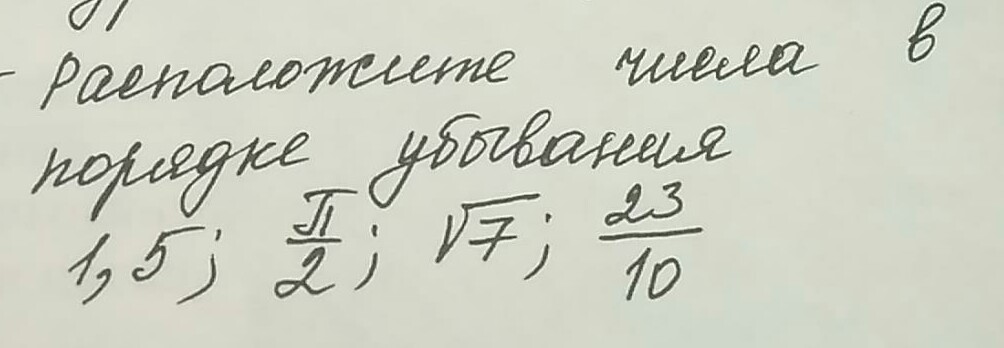 - Расположите числа в
порядке убывания
1,5; π/2; √7; 23/10